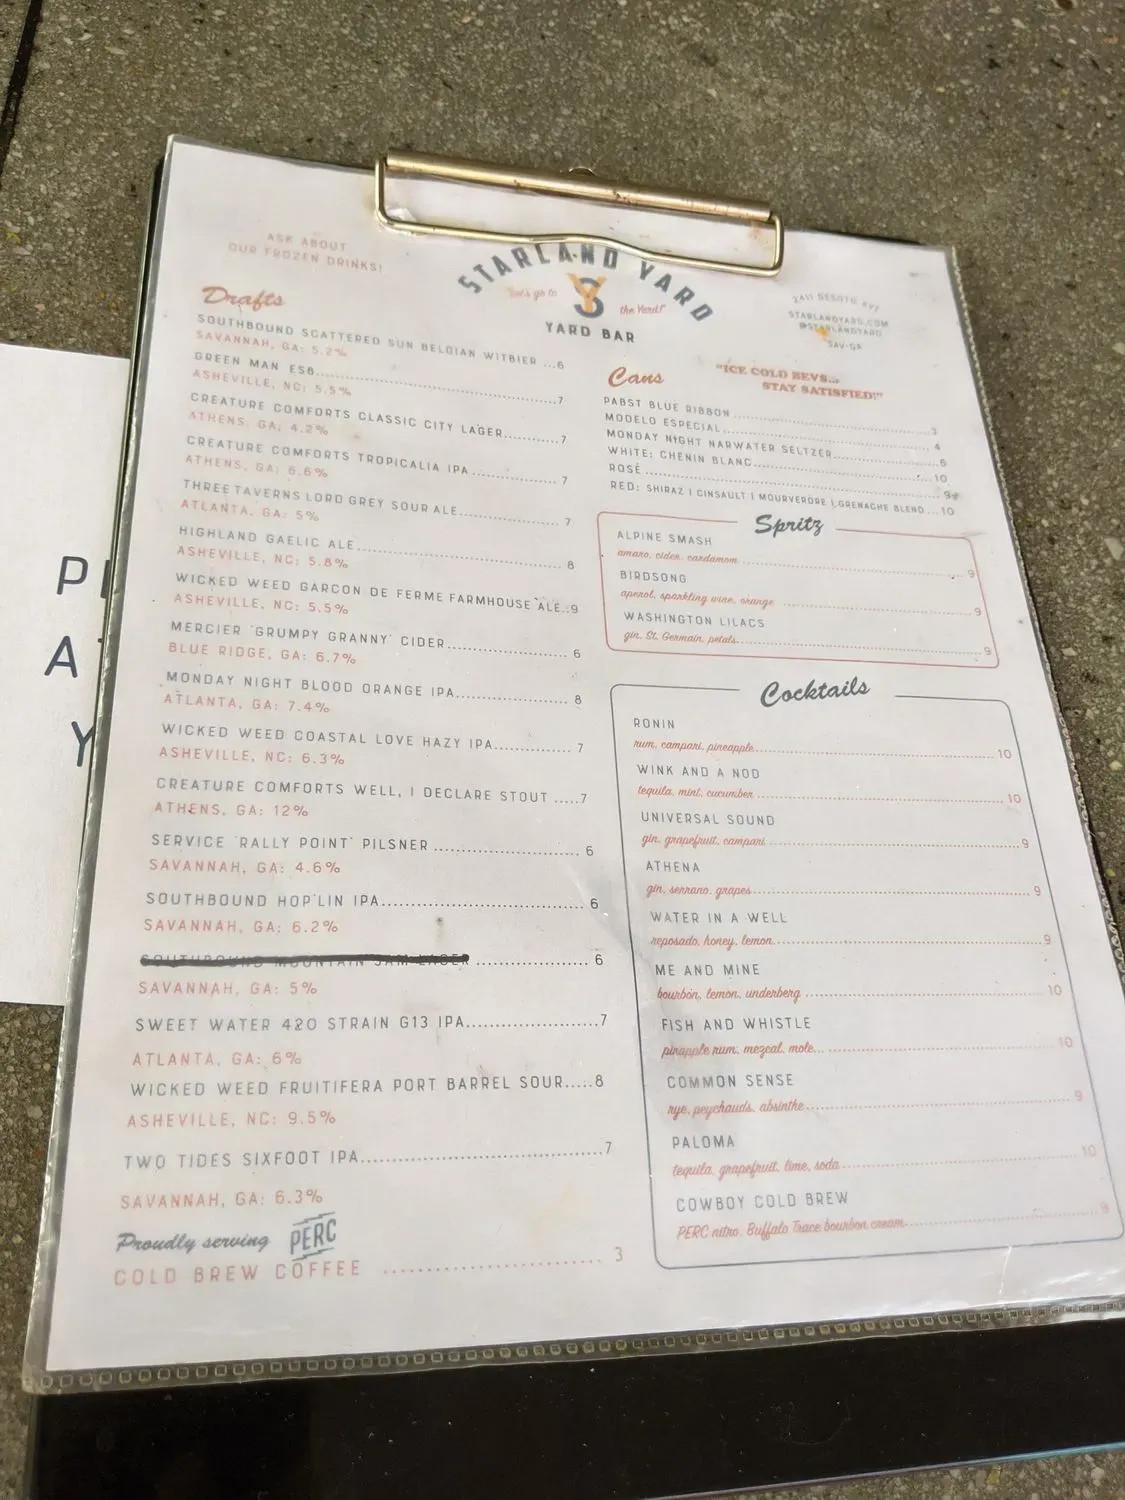 ASK ABOUT
OUR FROZEN DRINKS!
STARLAND YARD
Let's go to
YS
the Yard!"
YARD BAR
2411 DESOTO AVE
STARLANDYARD.COM
@STARLANDYARD
SAV-GA
Drafts
SOUTHBOUND SCATTERED SUN BELGIAN WITBIER ...6
SAVANNAH, GA: 5.2%
GREEN MAN ESB...7
ASHEVILLE, NC: 5.5%
CREATURE COMFORTS CLASSIC CITY LAGER...7
ATHENS, GA: 4.2%
CREATURE COMFORTS TROPICALIA IPA...7
ATHENS, GA: 6.6%
THREE TAVERNS LORD GREY SOUR ALE...7
ATLANTA, GA: 5%
HIGHLAND GAELIC ALE...8
ASHEVILLE, NC: 5.8%
WICKED WEED GARCON DE FERME FARMHOUSE ALE..9
ASHEVILLE, NC: 5.5%
MERCIER 'GRUMPY GRANNY' CIDER...6
BLUE RIDGE, GA: 6.7%
MONDAY NIGHT BLOOD ORANGE IPA...8
ATLANTA, GA: 7.4%
WICKED WEED COASTAL LOVE HAZY IPA...7
ASHEVILLE, NC: 6.3%
CREATURE COMFORTS WELL, I DECLARE STOUT .....7
ATHENS, GA: 12%
SERVICE 'RALLY POINT' PILSNER ...6
SAVANNAH, GA: 4.6%
SOUTHBOUND HOP'LIN IPA...6
SAVANNAH, GA: 6.2%
SOUTHBOUND MOUNTAIN JAM LAGER ...6
SAVANNAH, GA: 5%
SWEET WATER 420 STRAIN G13 IPA...7
ATLANTA, GA: 6%
WICKED WEED FRUITIFERA PORT BARREL SOUR.....8
ASHEVILLE, NC: 9.5%
TWO TIDES SIXFOOT IPA...7
SAVANNAH, GA: 6.3%
Proudly serving PERC
COLD BREW COFFEE ...3
Cans
"ICE COLD BEVS...
STAY SATISFIED!"
PABST BLUE RIBBON ...3
MODELO ESPECIAL...4
MONDAY NIGHT NARWATER SELTZER...6
WHITE: CHENIN BLANC...10
ROSÉ ...9
RED: SHIRAZ | CINSAULT | MOURVERDRE | GRENACHE BLEND...10
Spritz
ALPINE SMASH
amaro, cider, cardamom ...9
BIRDSONG
aperol, sparkling wine, orange ...9
WASHINGTON LILACS
gin, St. Germain, petals...9
Cocktails
RONIN
rum, campari, pineapple...10
WINK AND A NOD
tequila, mint, cucumber...10
UNIVERSAL SOUND
gin, grapefruit, campari ...9
ATHENA
gin, serrano, grapes...9
WATER IN A WELL
reposado, honey, lemon...9
ME AND MINE
bourbon, lemon, underberg ...10
FISH AND WHISTLE
pineapple rum, mezcal, mole...10
COMMON SENSE
rye, peychauds, absinthe...9
PALOMA
tequila, grapefruit, lime, soda...10
COWBOY COLD BREW
PERC nitro, Buffalo Trace bourbon cream...9
P
A
Y